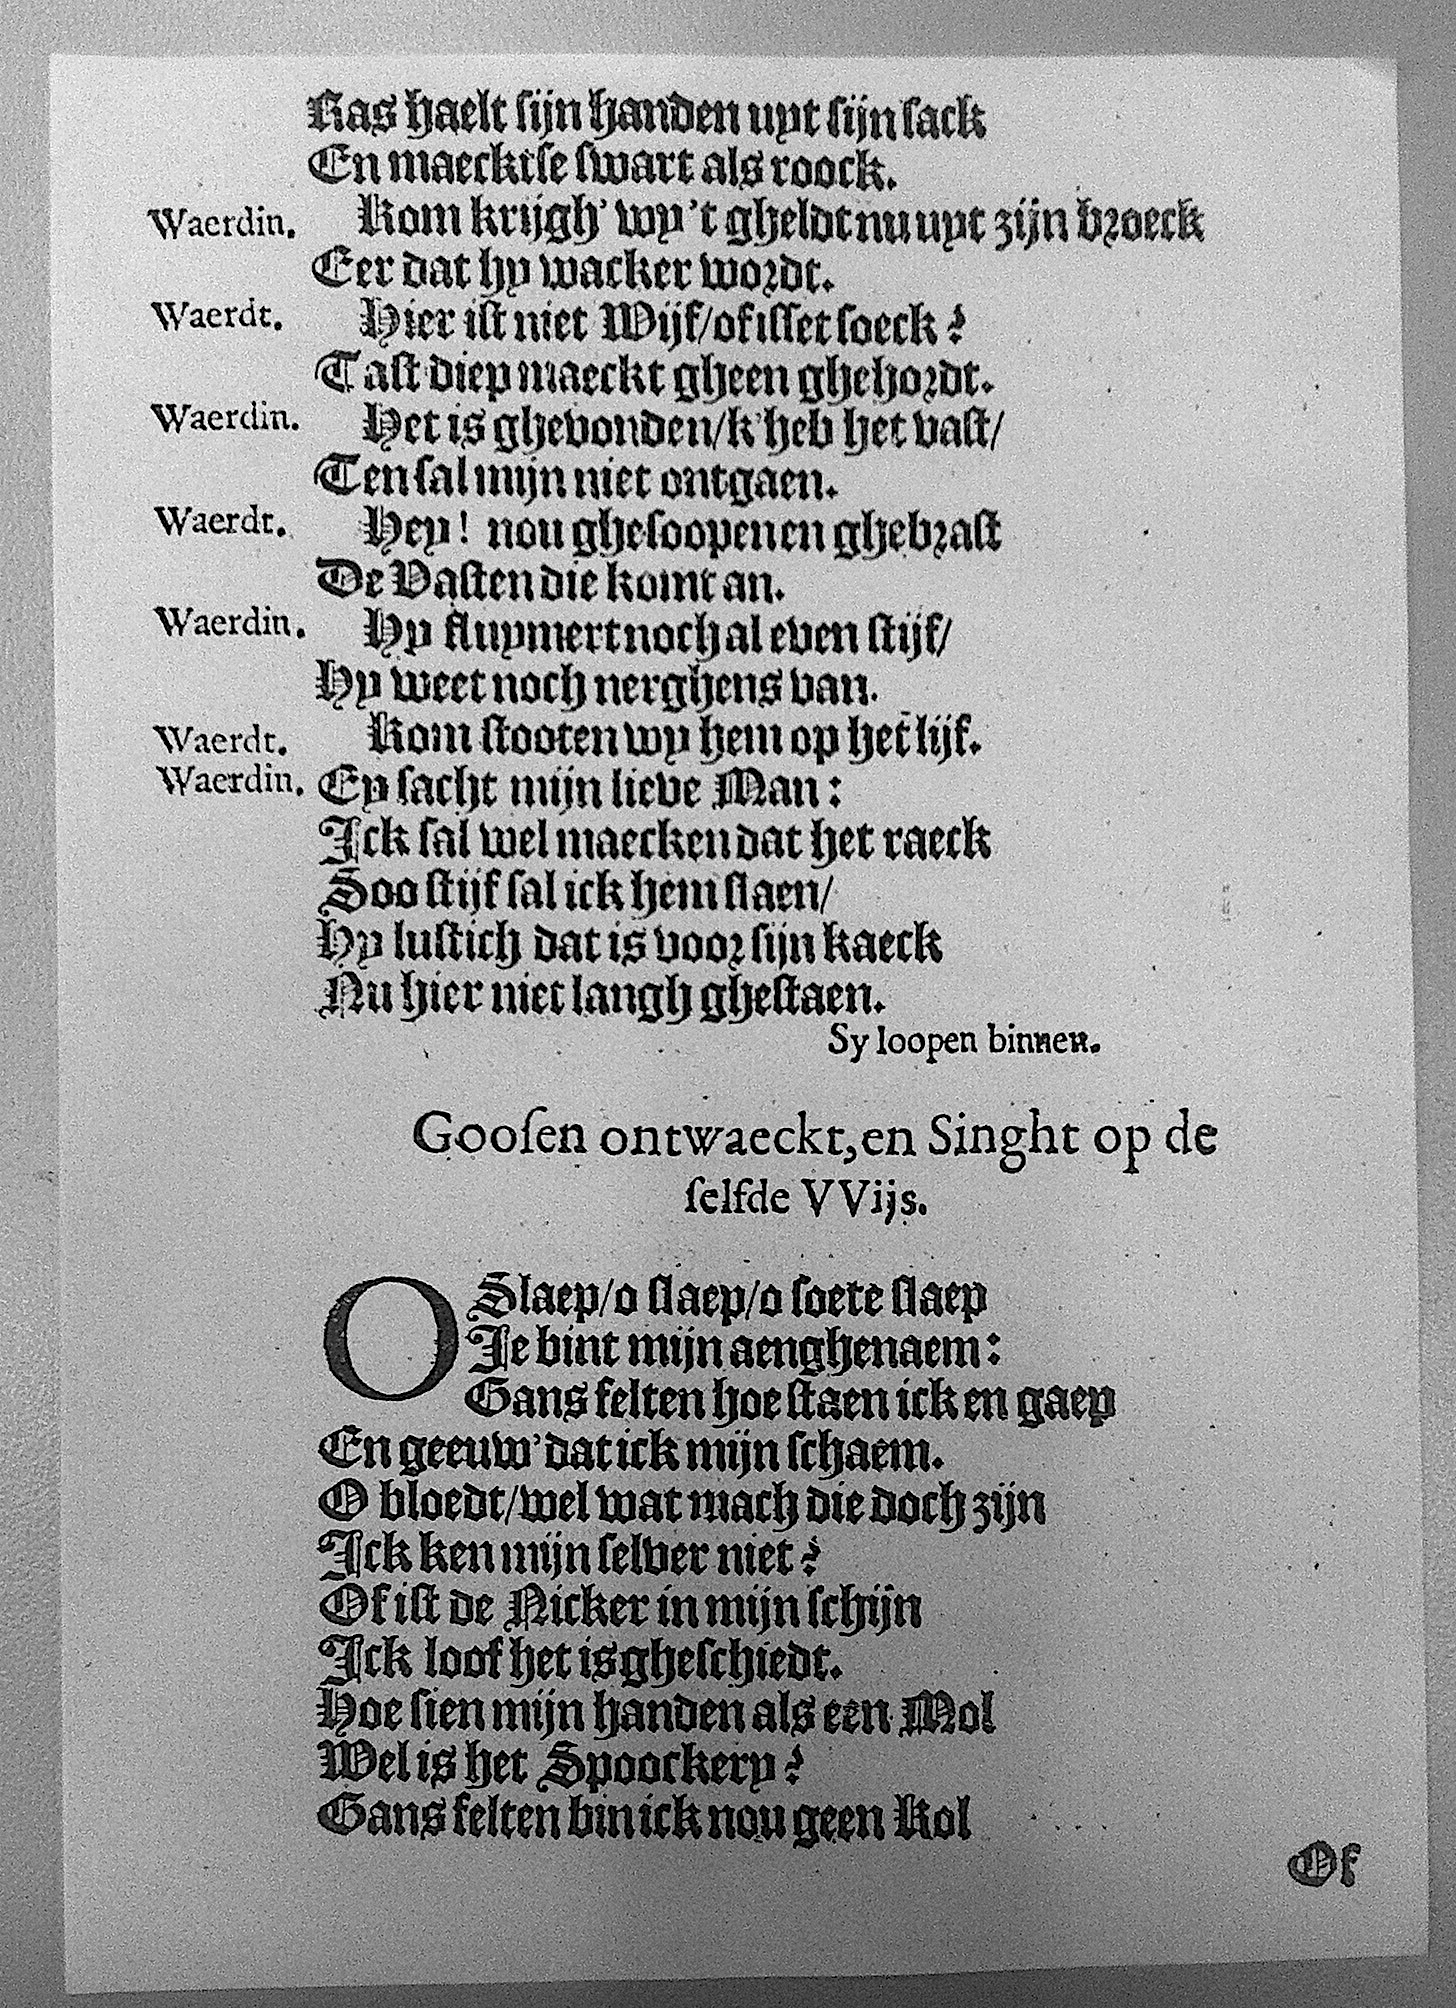 Ras haelt sijn handen uyt sijn sack
En maecktse swart als roock.
Waerdin. Kom krijgh' wy 't gheldt nu uyt zijn broeck
Eer dat hy wacker wordt.
Waerdt. Hier ist niet Wijf/of isset soeck?
Tast diep maeckt gheen ghehordt.
Waerdin. Het is ghevonden/k'heb het vast/
Ten sal mijn niet ontgaen.
Waerdt. Hey! nou ghesoopen en ghebrast
De Vasten die komt an.
Waerdin. Hy sluymert noch al even stijf/
Hy weet noch nerghens van.
Waerdt. Kom stooten wy hem op het lijf.
Waerdin. Ey sacht mijn lieve Man:
Ick sal wel maecken dat het raeck
Soo stijf sal ick hem slaen/
Hy lustich dat is voor sijn kaeck
Nu hier niet langh ghestaen.
Sy loopen binnen.
Goosen ontwaeckt, en Singht op de
selfde VVijs.
O Slaep/o slaep/o soete slaep
Je bint mijn aenghenaem:
Gans felten hoe staen ick en gaep
En geeuw' dat ick mijn schaem.
O bloedt/wel wat mach die doch zijn
Ick ken mijn selver niet?
Of ist de Nicker in mijn schijn
Ick loof het is gheschiedt.
Hoe sien mijn handen als een Mol
Wel is het Spoockery?
Gans felten bin ick nou geen Kol
Of